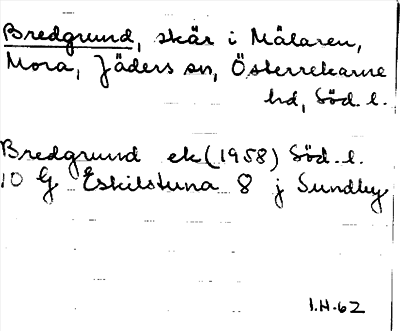 Bredgrund, skär i Mälaren,
Mora, Jäders sn, Österrekarne
hd, Söd. l.
Bredgrund ek (1958) Söd. l.
10 G Eskilstuna 8 j Sundby
I.H-62